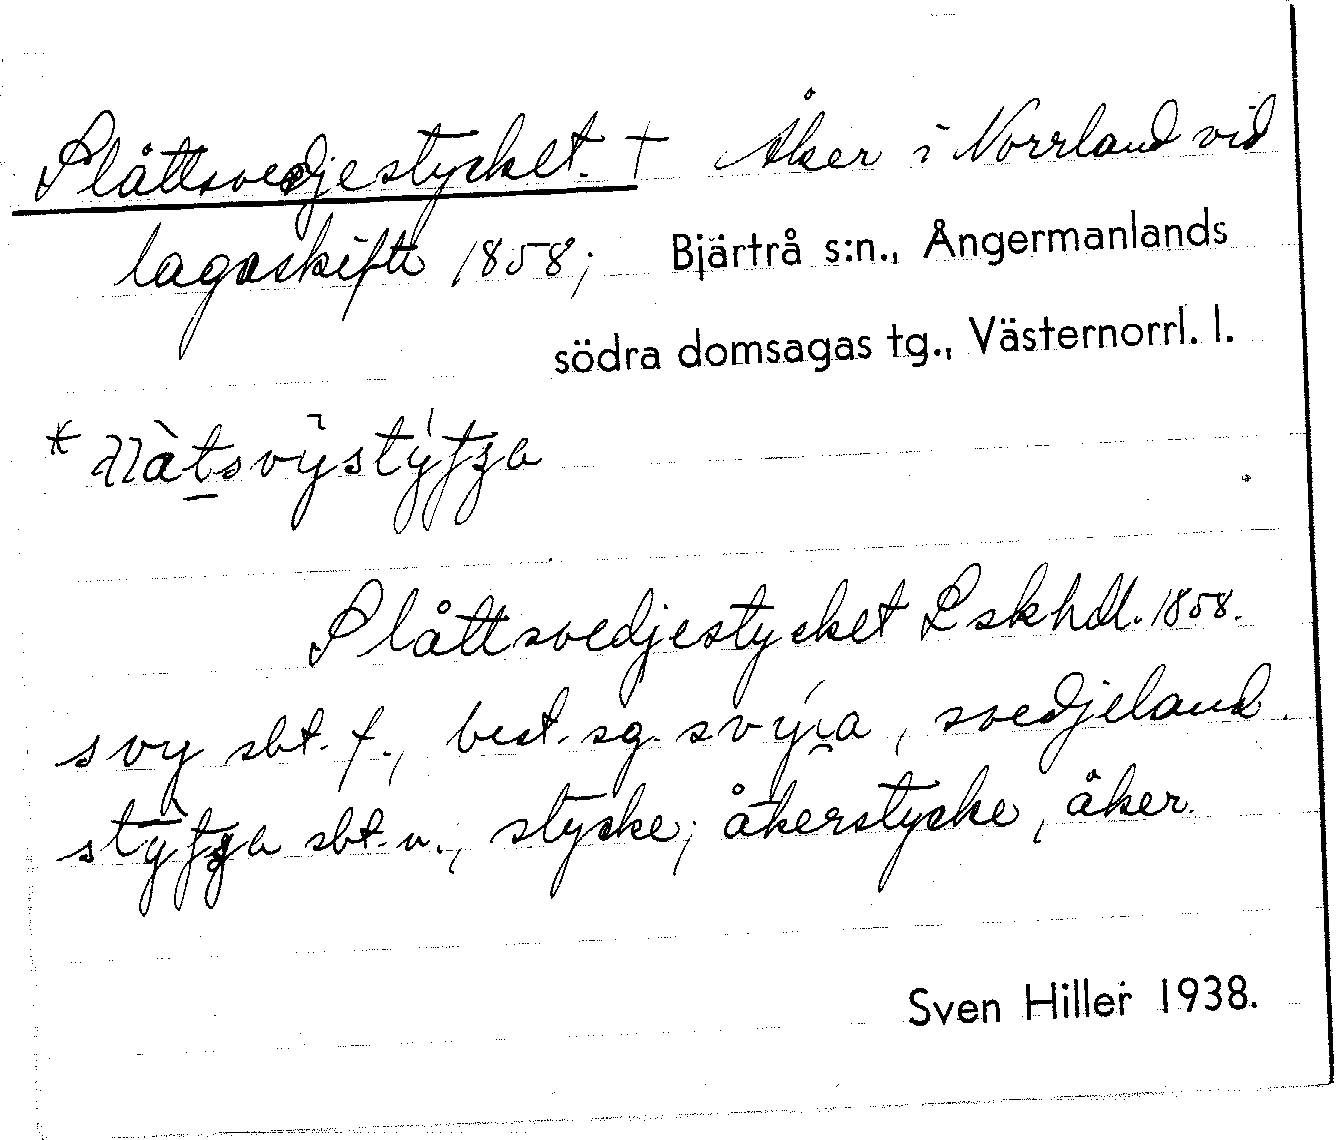 Slåttsvedjestycket. † Åker i Norrland vid
lagaskifte 1858; Bjärtrå s:n., Ångermanlands
södra domsagas tg., Västernorrl. l.
Slåttsvedjestycket Lskhdl. 1858.
svy sbt. f., best. sg. svýı̄a, svedjeland.
sbt. n., stycke; åkerstycke, åker.
Sven Hiller 1938.